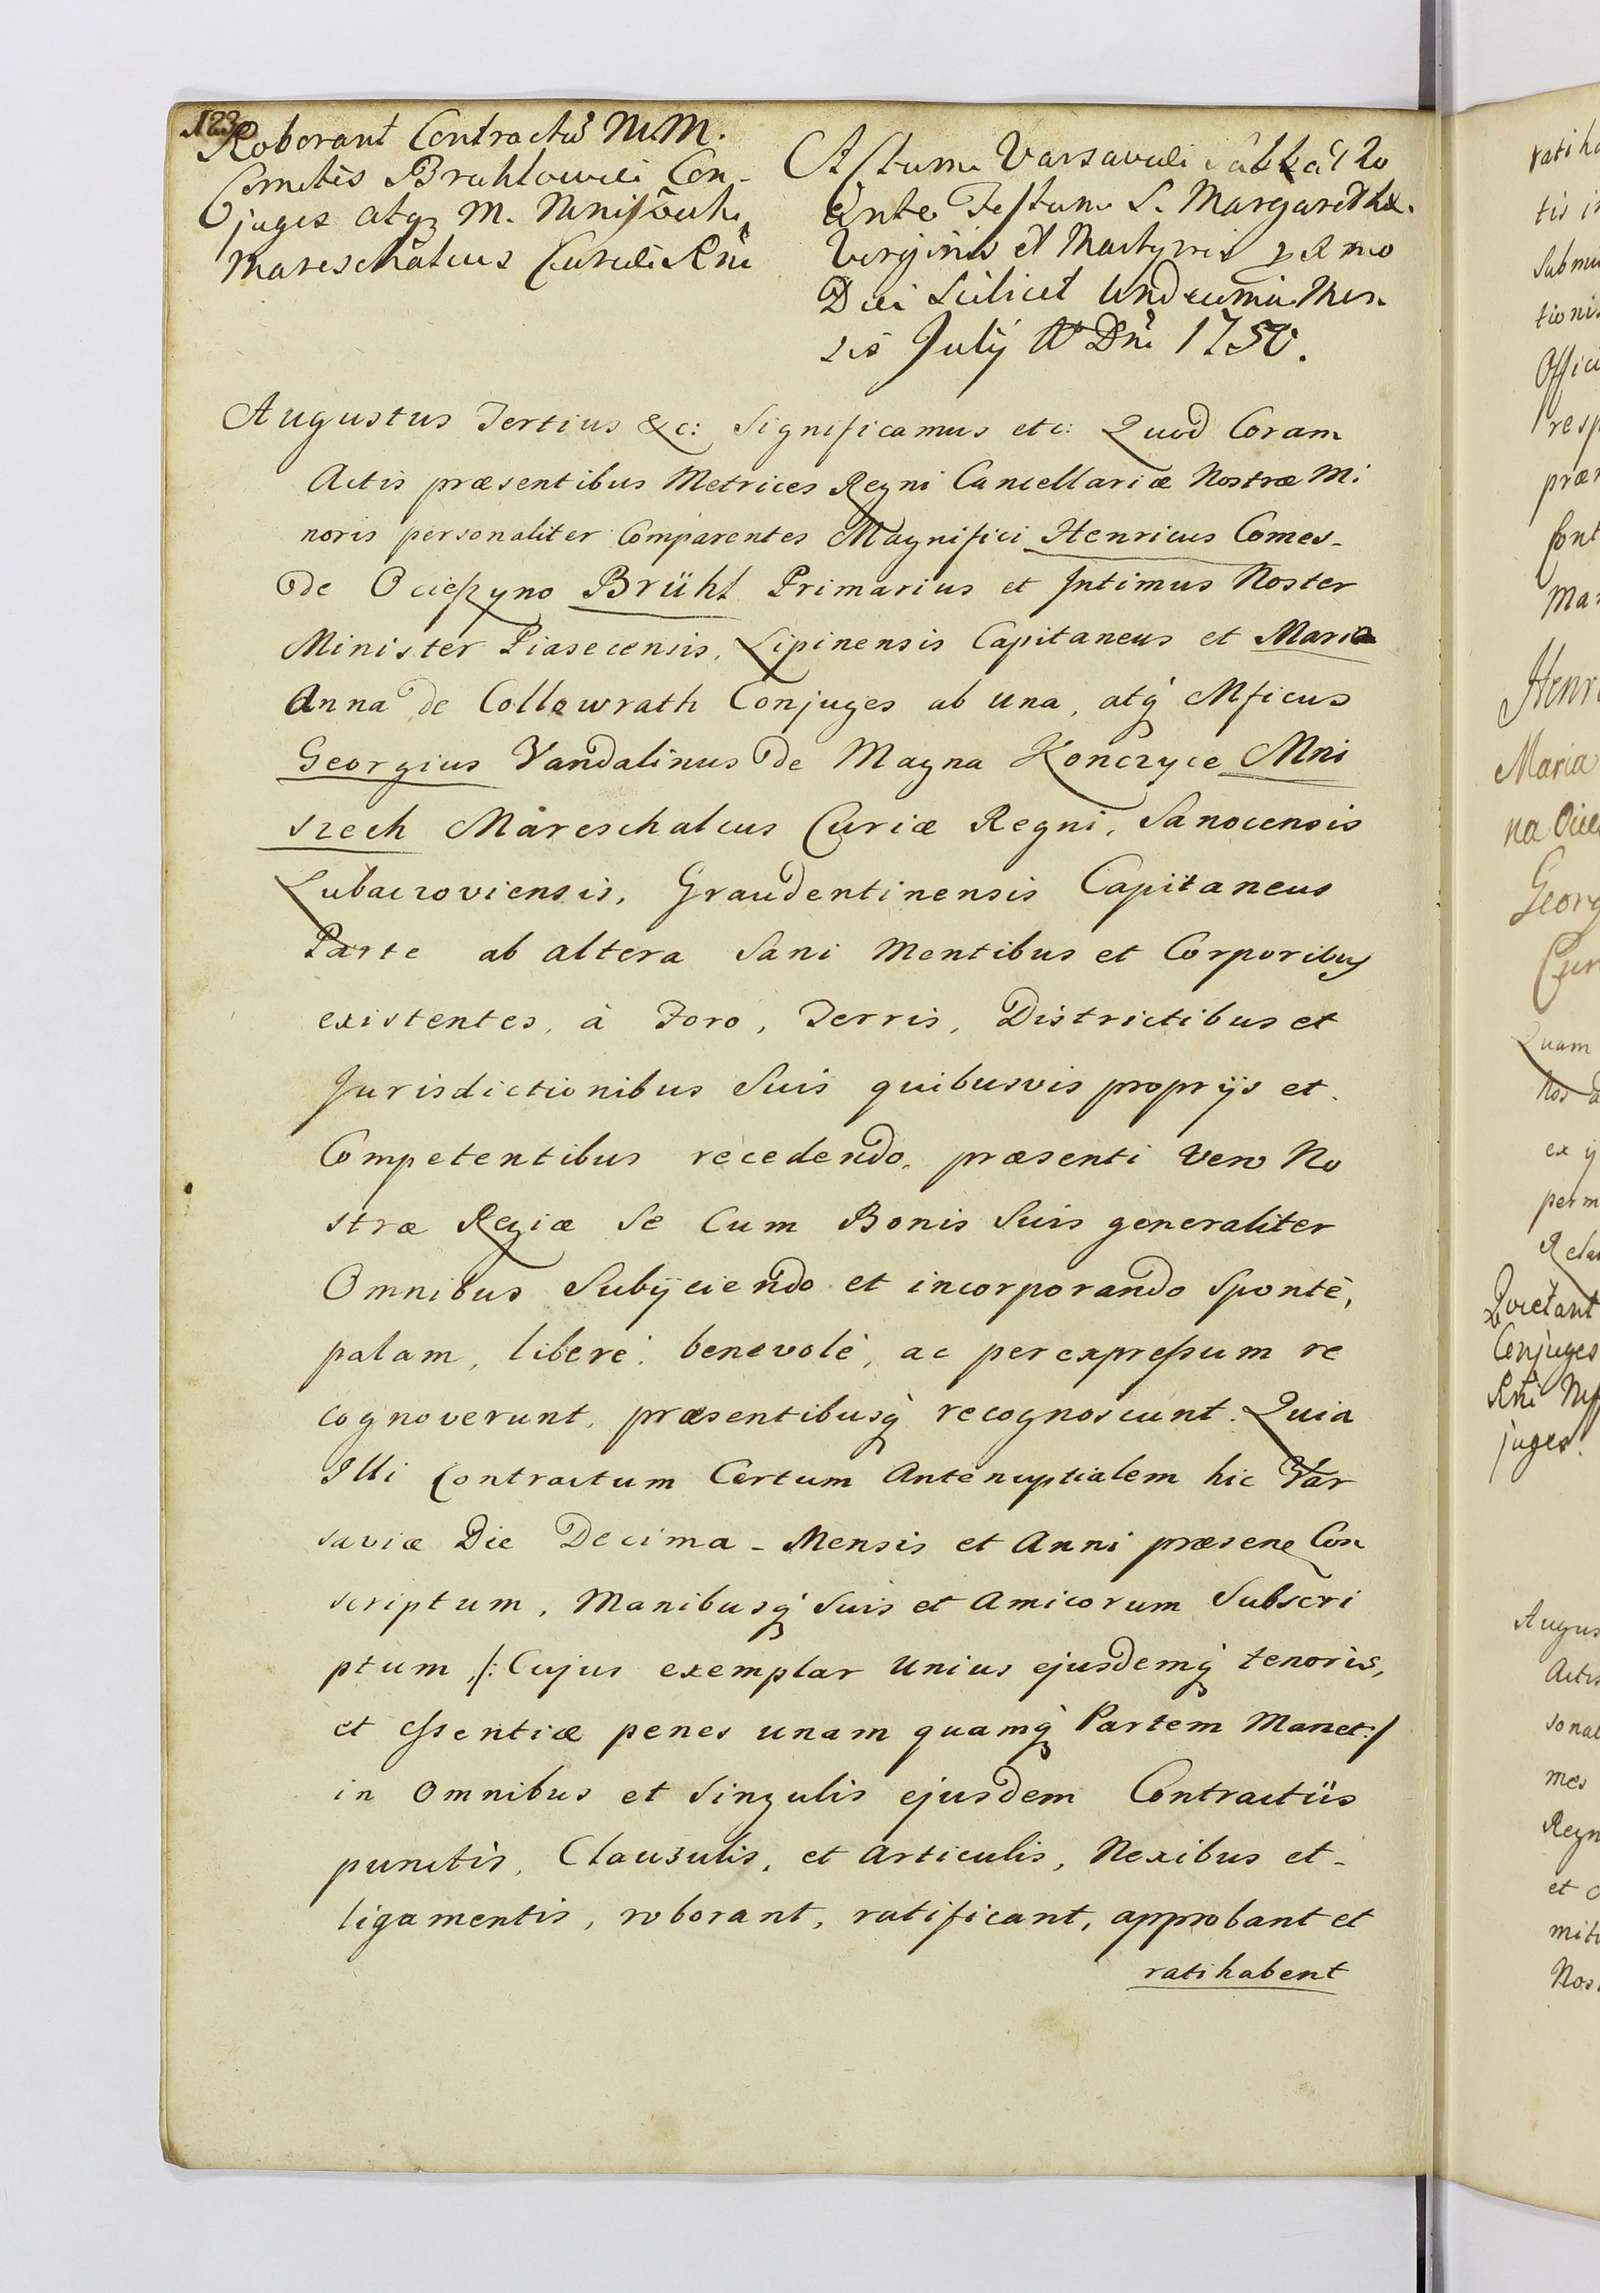 123
Roborant Contractū M.M.
Comites Bruhlowie Con-
juges atq M. Mniszech
Mareschalcus Curiæ Rñi
Actum Varsaviæ Sabbatho
Ante Festum S. Margarethæ
Virginis et Martyris pxmo
Die Scilicet Undecima Men
sis Julÿ Aº Dñi 1750.
Augustus Tertius &c: Significamus etc: Quod Coram
Actis præsentibus Metrices Regni Cancellariæ Nostræ Mi
noris personaliter Comparentes Magnifici Henricus Comes-
de Ocieszyno Brühl Primarius et Intimus Noster
Minister Piasecensis, Lipinensis Capitaneus et Maria
Anna de Collowrath Conjuges ab una, atq́ Mficus
Georgius Vandalinus de Magna Konczyce Mni
szech Mareschalcus Curiæ Regni, Sanocensis
Lubaczoviensis, Graudentinensis Capitaneus
Parte ab altera Sani Mentibus et Corporibus
existentes, à Foro, Terris, Districtibus et
Jurisdictionibus Suis quibusvis proprÿs et
Competentibus recedendo, præsenti vero No
stræ Regiæ Se Cum Bonis Suis generaliter
Omnibus Subÿciendo et incorporando Spontè,
palam, liberè, benevolè, ac per expressum re
cognoverunt, præsentibusq́ recognoscunt. Quia
Illi Contractum Certum Antenuptialem hic Var
saviæ Die Decima - Mensis et Anni præsene Con
scriptum, Manibusq́ Suis et Amicorum Subscri
ptum /: Cujus exemplar unius ejusdemq́ tenoris,
et essentiæ penes unam quamq́ Partem Manet :/
in Omnibus et Singulis ejusdem Contractûs
punctis, Clausulis, et Articulis, Nexibus et-
ligamentis, roborant, ratificant, approbant et
ratihabent
ratiha
tis i
Submi
tionis
Offici
resp
præ
font
Mar
Henri
Maria
na Ocie
Georg
Cur
Quam
hos
ex ÿ
perm
Rela
Quietant
Conjuges
Rñi
juges.
Augus
Actis
sonal
mes
Regn
et
mit
Nos